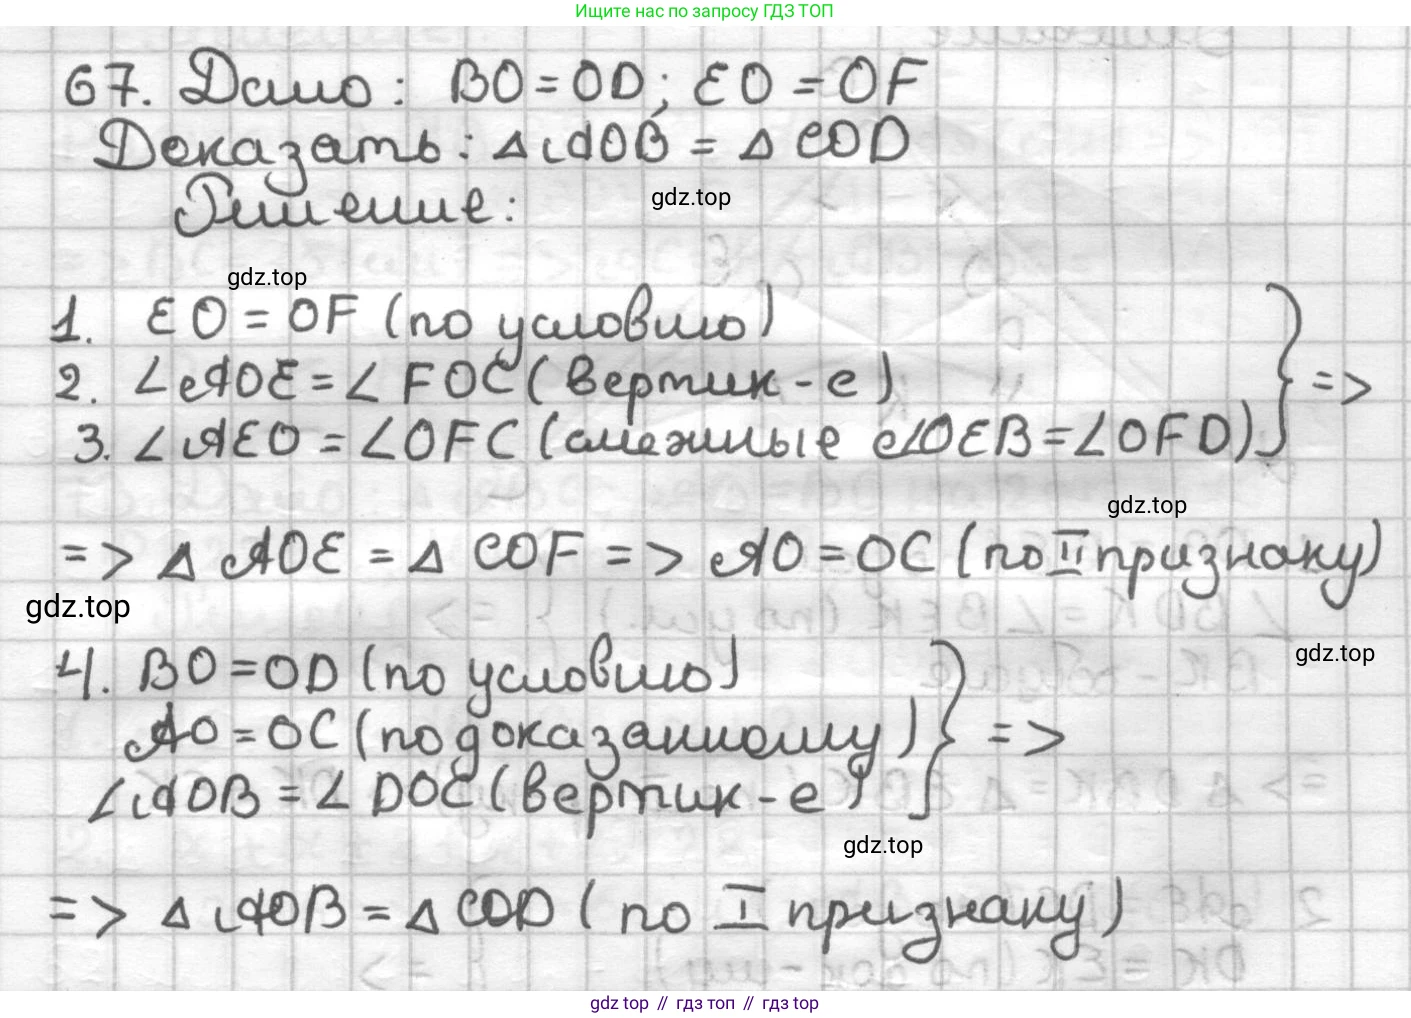 Ищите нас по запросу ГДЗ ТОП
67. Дано: BO = OD; EO = OF
Доказать: △AOB = △COD
gdz.top
Решение:
gdz.top
1. EO = OF (по условию)
2. ∠AOE = ∠FOC (вертик-е)
3. ∠AEO = ∠OFC (смежные с ∠OEB = ∠OFD) } =>
gdz.top
=> △AOE = △COF => AO = OC (по II признаку)
gdz.top
gdz.top
4. BO = OD (по условию)
AO = OC (по доказанному) } =>
∠AOB = ∠DOC (вертик-е)
gdz.top
=> △AOB = △COD (по I признаку)
gdz top // гдз топ // гдз top